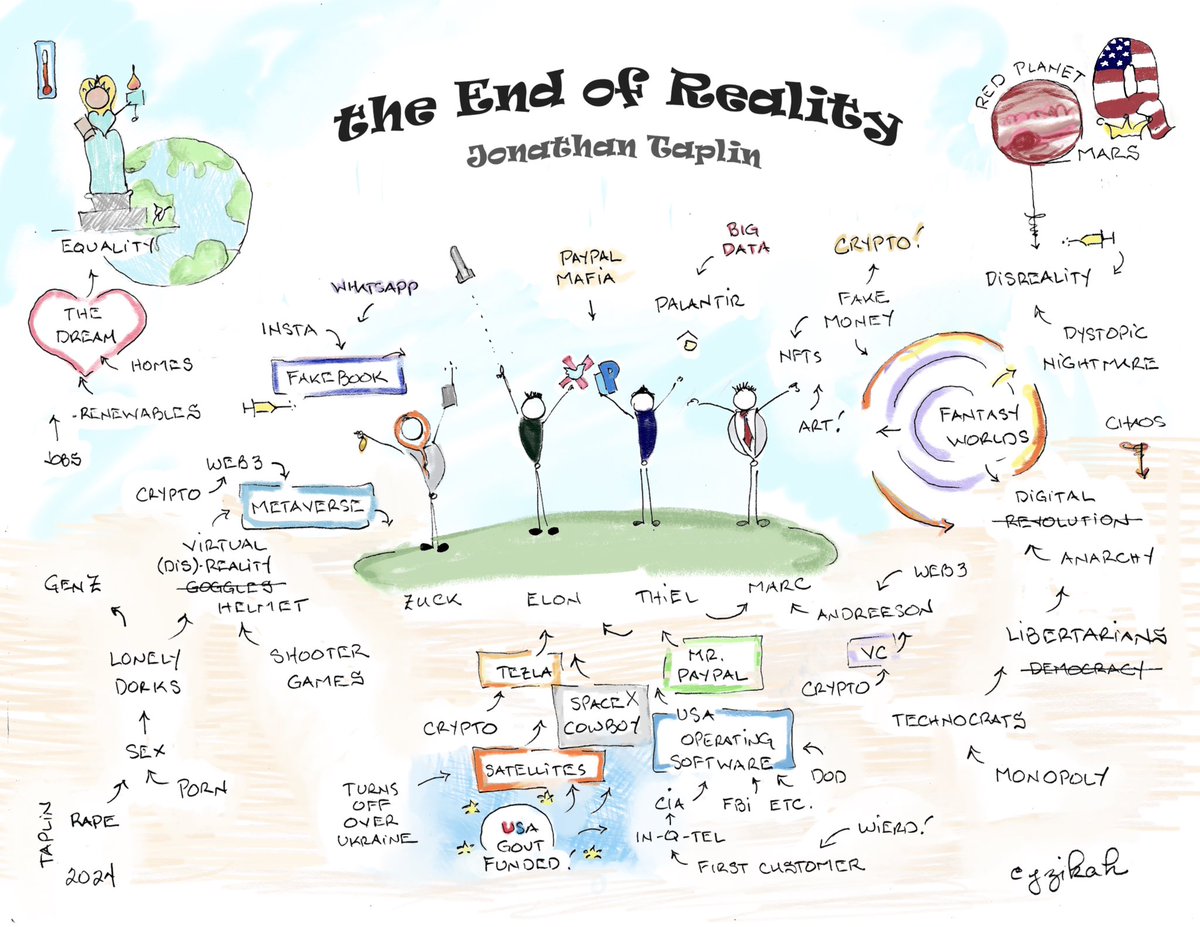 the End of Reality
Jonathan Taplin
EQUALITY
THE
DREAM
HOMES
-RENEWABLES
JOBS
WHATSAPP
INSTA
FAKEBOOK
PAYPAL
MAFIA
BIG
DATA
PALANTIR
P
CRYPTO!
FAKE
MONEY
NFTS
ART!
RED PLANET
MARS
Q
DISREALITY
DYSTOPIC
NIGHTMARE
FANTASY
WORLDS
CHAOS
DIGITAL
REVOLUTION
ANARCHY
LIBERTARIANS
DEMOCRACY
TECHNOCRATS
MONOPOLY
WEB3
CRYPTO
METAVERSE
VIRTUAL
(DIS)-REALITY
GOGGLES
HELMET
GENZ
LONELY
DORKS
SHOOTER
GAMES
SEX
PORN
RAPE
ZUCK
ELON
THIEL
MARC
ANDREESON
WEB3
VC
CRYPTO
TEZLA
CRYPTO
SPACEX
COWBOY
MR.
PAYPAL
SATELLITES
TURNS
OFF
OVER
UKRAINE
USA
GOUT
FUNDED!
USA
OPERATING
SOFTWARE
DOD
CIA
FBI ETC.
IN-Q-TEL
WIERD!
FIRST CUSTOMER
TAPLIN
2024
cyzikah